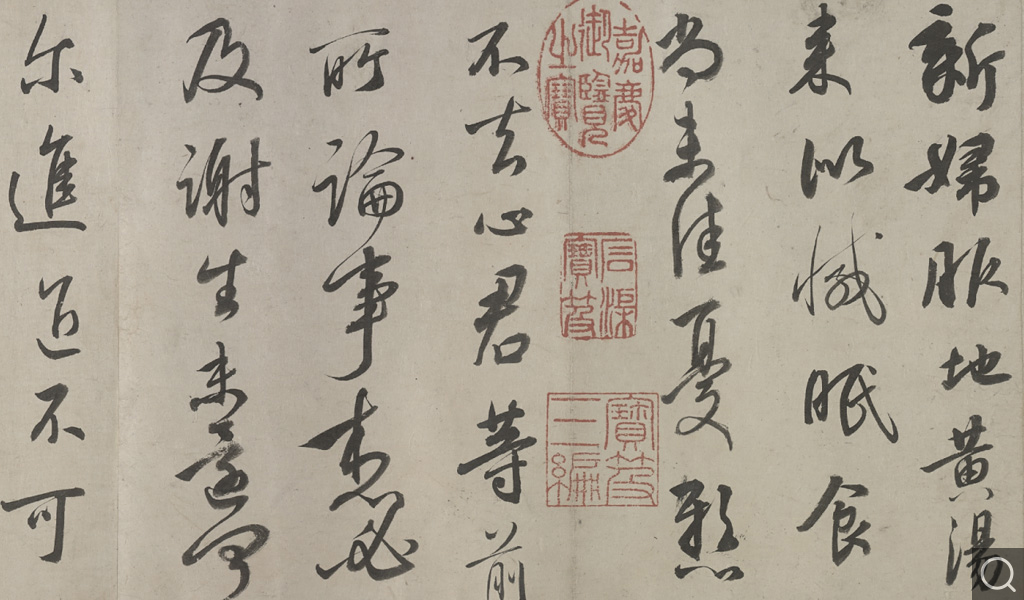 新婦服地黃湯
來似減眠食
尚未佳憂懸
嘉慶
御覽
之寶
石渠
寶笈
寶笈
三編
不去心君等前
所論事想必
及謝生未還何
尔進退不可